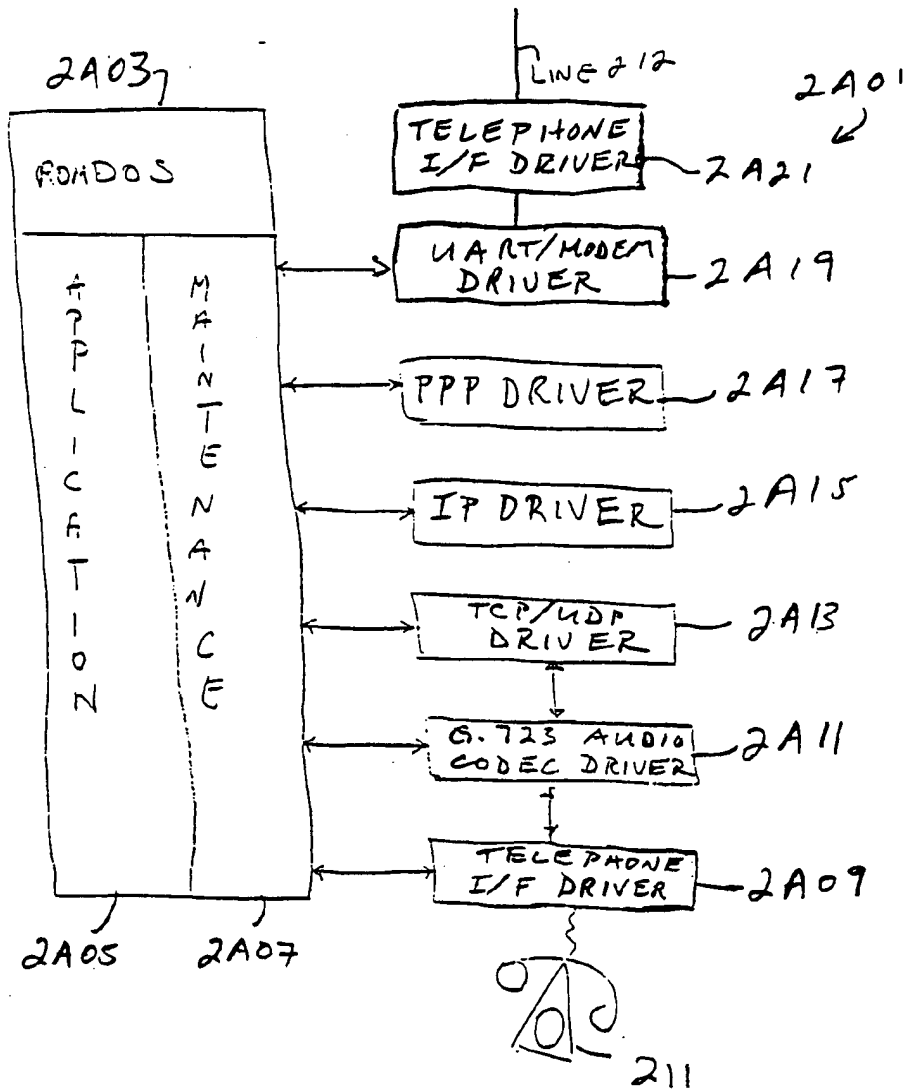 2A03
LINE 212
2A01
ROMDOS
TELEPHONE
I/F DRIVER
2A21
UART/MODEM
DRIVER
2A19
APPLICATION
MAINTENANCE
PPP DRIVER
2A17
IP DRIVER
2A15
TCP/UDP
DRIVER
2A13
G.723 AUDIO
CODEC DRIVER
2A11
TELEPHONE
I/F DRIVER
2A09
2A05
2A07
211